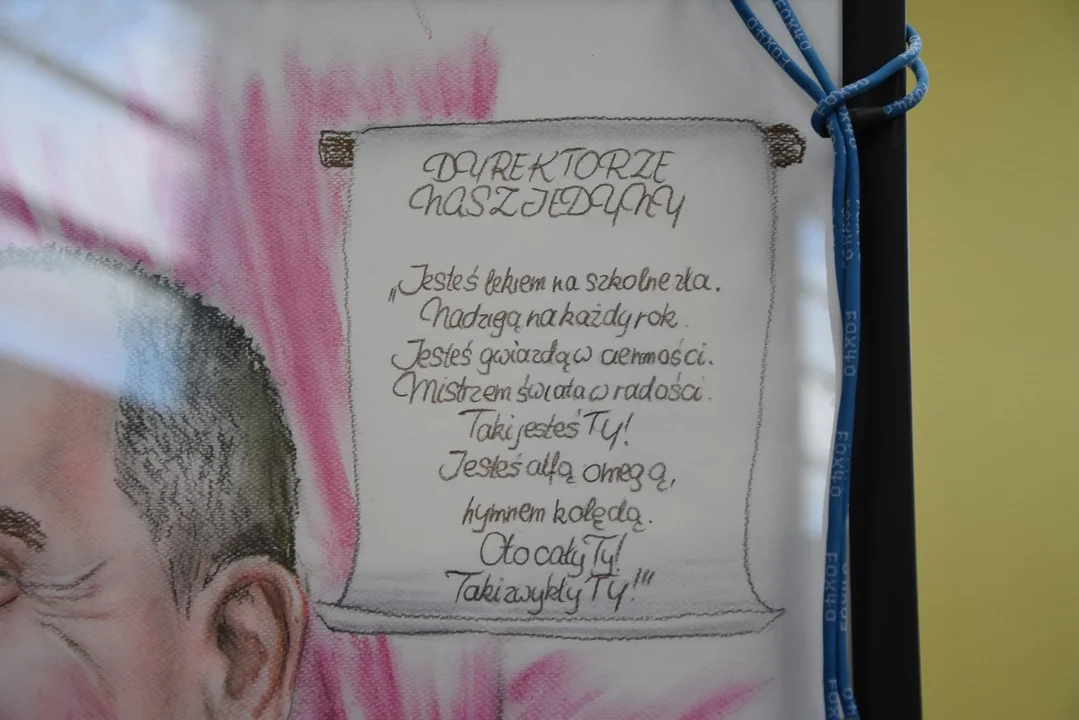 DYREKTORZE
NASZ JEDYNY
„Jesteś lekiem na szkolne zła.
Nadzigą na każdy rok.
Jesteś gwiazdą w ciemności.
Mistrzem świata w radości.
Taki jesteś Ty!
Jesteś alfą omegą,
hymnem kolędą.
Oto cały Ty!
Taki zwykły Ty!"
FOX40
FOX40
FOX40
FOX40
FOX40
FOX40
FOX40